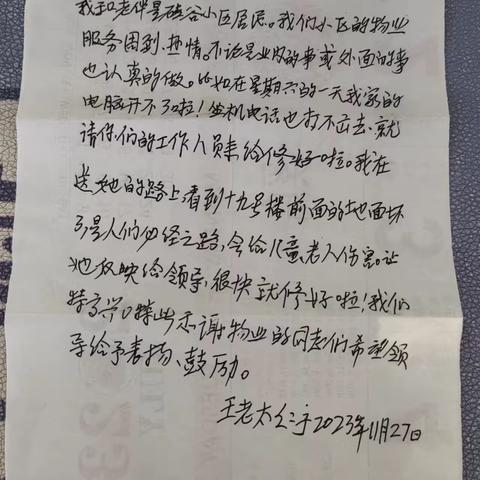 我和老伴是硅谷小区居民。我们小区的物业
服务周到、热情。不论是业内的事或外面的事
也认真的做。比如在星期六的一天我家的
电脑开不了啦！坐机电话也打不出去、就
请你们的工作人员来给修好啦。我在
送她的路上，看到十九号楼前面的地面坏
了，是人们必经之路，会给儿童、老人伤害。让
她反映给领导，很快就修好啦！我们
特高兴！特此示谢物业的同志们希望领
导给予表扬、鼓励。
王老太 于2023年11月27日